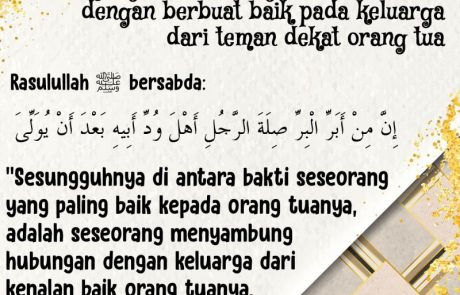 dengan berbuat baik pada keluarga
dari teman dekat orang tua
Rasulullah ﷺ bersabda:
إِنَّ مِنْ أَبَرِّ الْبِرِّ صِلَةَ الرَّجُلِ أَهْلَ وُدِّ أَبِيهِ بَعْدَ أَنْ يُوَلِّىَ
"Sesungguhnya di antara bakti seseorang
yang paling baik kepada orang tuanya,
adalah seseorang menyambung
hubungan dengan keluarga dari
kenalan baik orang tuanya.